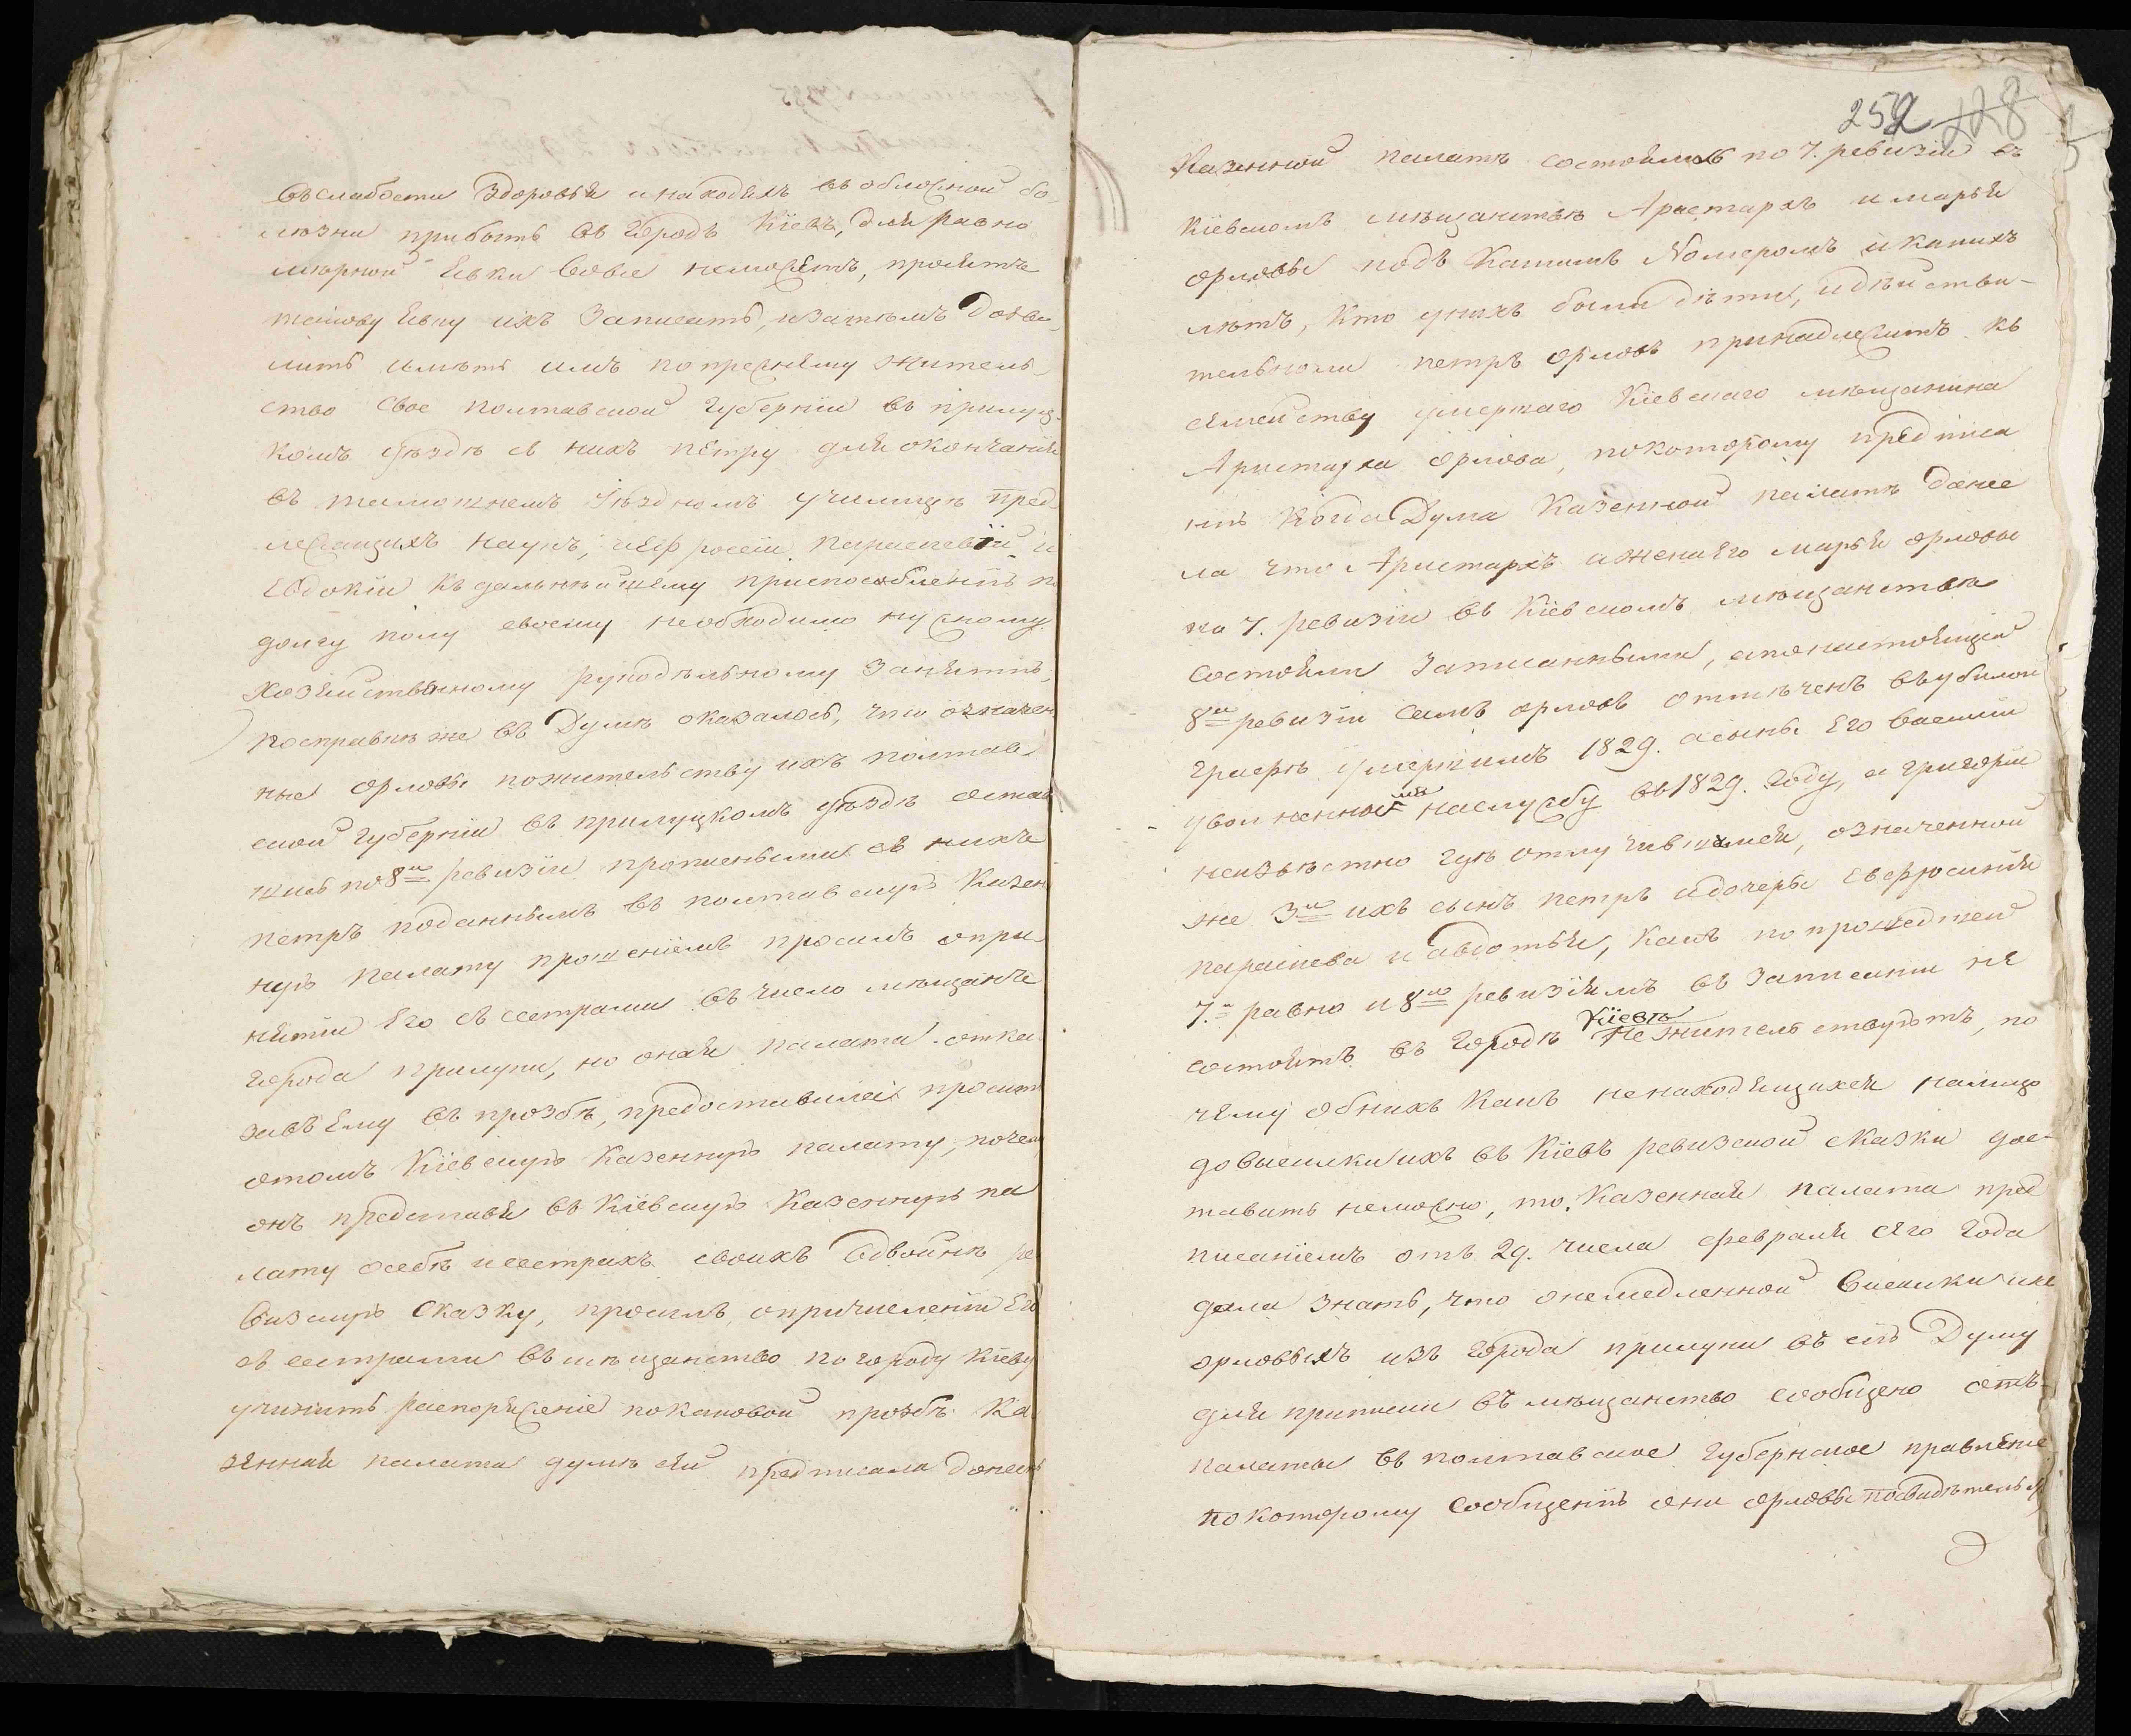 въ слабости здоровья и находясь въ обложной бо-
лезни прибыть въ Городъ Кіевъ, для равно
мѣрной явки Своея неможетъ, проситъ
таковую явку ихъ Записать, и Затѣмъ дозво-
лить имѣть имъ попрежнему жителъ-
ство свое полтавской Губерніи въ прилуц-
комъ уѣздѣ съ нихъ Петру для окончанія
въ тамошнемъ Уѣздномъ училищѣ пред-
лежащихъ Наукъ, Параскевіи и
Евдокіи къ дальнѣйшему приспособленію по
долгу полу своему необходимо нужному
хозяйственному рукодѣльному Занятію,
посправкѣ же въ Думѣ оказалось, что означен
ные Орловы пожительству ихъ полтав-
ской Губерніи въ прилуцкомъ уѣздѣ остав
шись по 8й ревизіи прописными съ нихъ
Петръ поданнымъ въ полтавскую Казен
ную палату прошеніемъ просилъ опри-
нятіи Его съ сестрами въ число мѣщанъ
Города прилуки, но оная палата отка-
завъ Ему въ прозбѣ, предоставила просить
отомъ Кіевскую Казенную палату, почему
онъ представя въ Кіевскую Казенную па
лату осебѣ исестрахъ своихъ вдвойнѣ ре
визскую Сказку, просилъ, опричисленіи Его
съ сестрами въ мѣщанство по городу Кіеву
учинить распоряженіе покаковой прозбѣ Ка
зенная палата думѣ сей предписала донесть
252 128
Казенной палатѣ состоялиль по 7. ревизіи въ
Кіевскомъ мѣщанствѣ Аристархъ и марья
Орловы подъ Какимъ Номеромъ и какихъ
лѣтъ, Кто унихъ были дѣти, и дѣйстви-
тельноли петръ орловъ принадлежитъ къ
семейству умершаго Кіевскаго мѣщанина
Аристарха Орлова, покоторому предписа
нію Когда Дума Казенной палатѣ донес
ла что Аристархъ ижена Его марья орловы
по 7. ревизіи въ Кіевскомъ мѣщанствѣ
состояли Записанными, апонастоящей
8й ревизіи самъ орловъ отмѣченъ въубылой
графѣ умершимъ 1829. асыны Его Василій
уволненнымъ наслужбу въ1829. Году, а григорій
неизвѣстно гдѣ отлучившимся, означенной
же 3й ихъ сынъ петръ идочери Евфросинія
параскева и авдотья, Какъ по прошедшей
7.й равно и 8й ревизіямъ въ Запискѣ не
состоятъ въ Городѣ Кіевѣ Не жительствуютъ, по
чему обнихъ Какъ ненаходящихся налицо
довысылки ихъ въ Кіевъ ревизской сказки дос-
тавить неможно, то Казенная палата пред
писаніемъ отъ 29. числа февраля сего Года
дала знать, что онемедленной высылкѣ ихъ
орловыхъ изъ Города прилуки въ сію Думу
для приписки въ мѣщанство сообщено отъ
палаты въ полтавское Губернское правленіе
покоторому Сообщенію они орловы посвидѣтельст